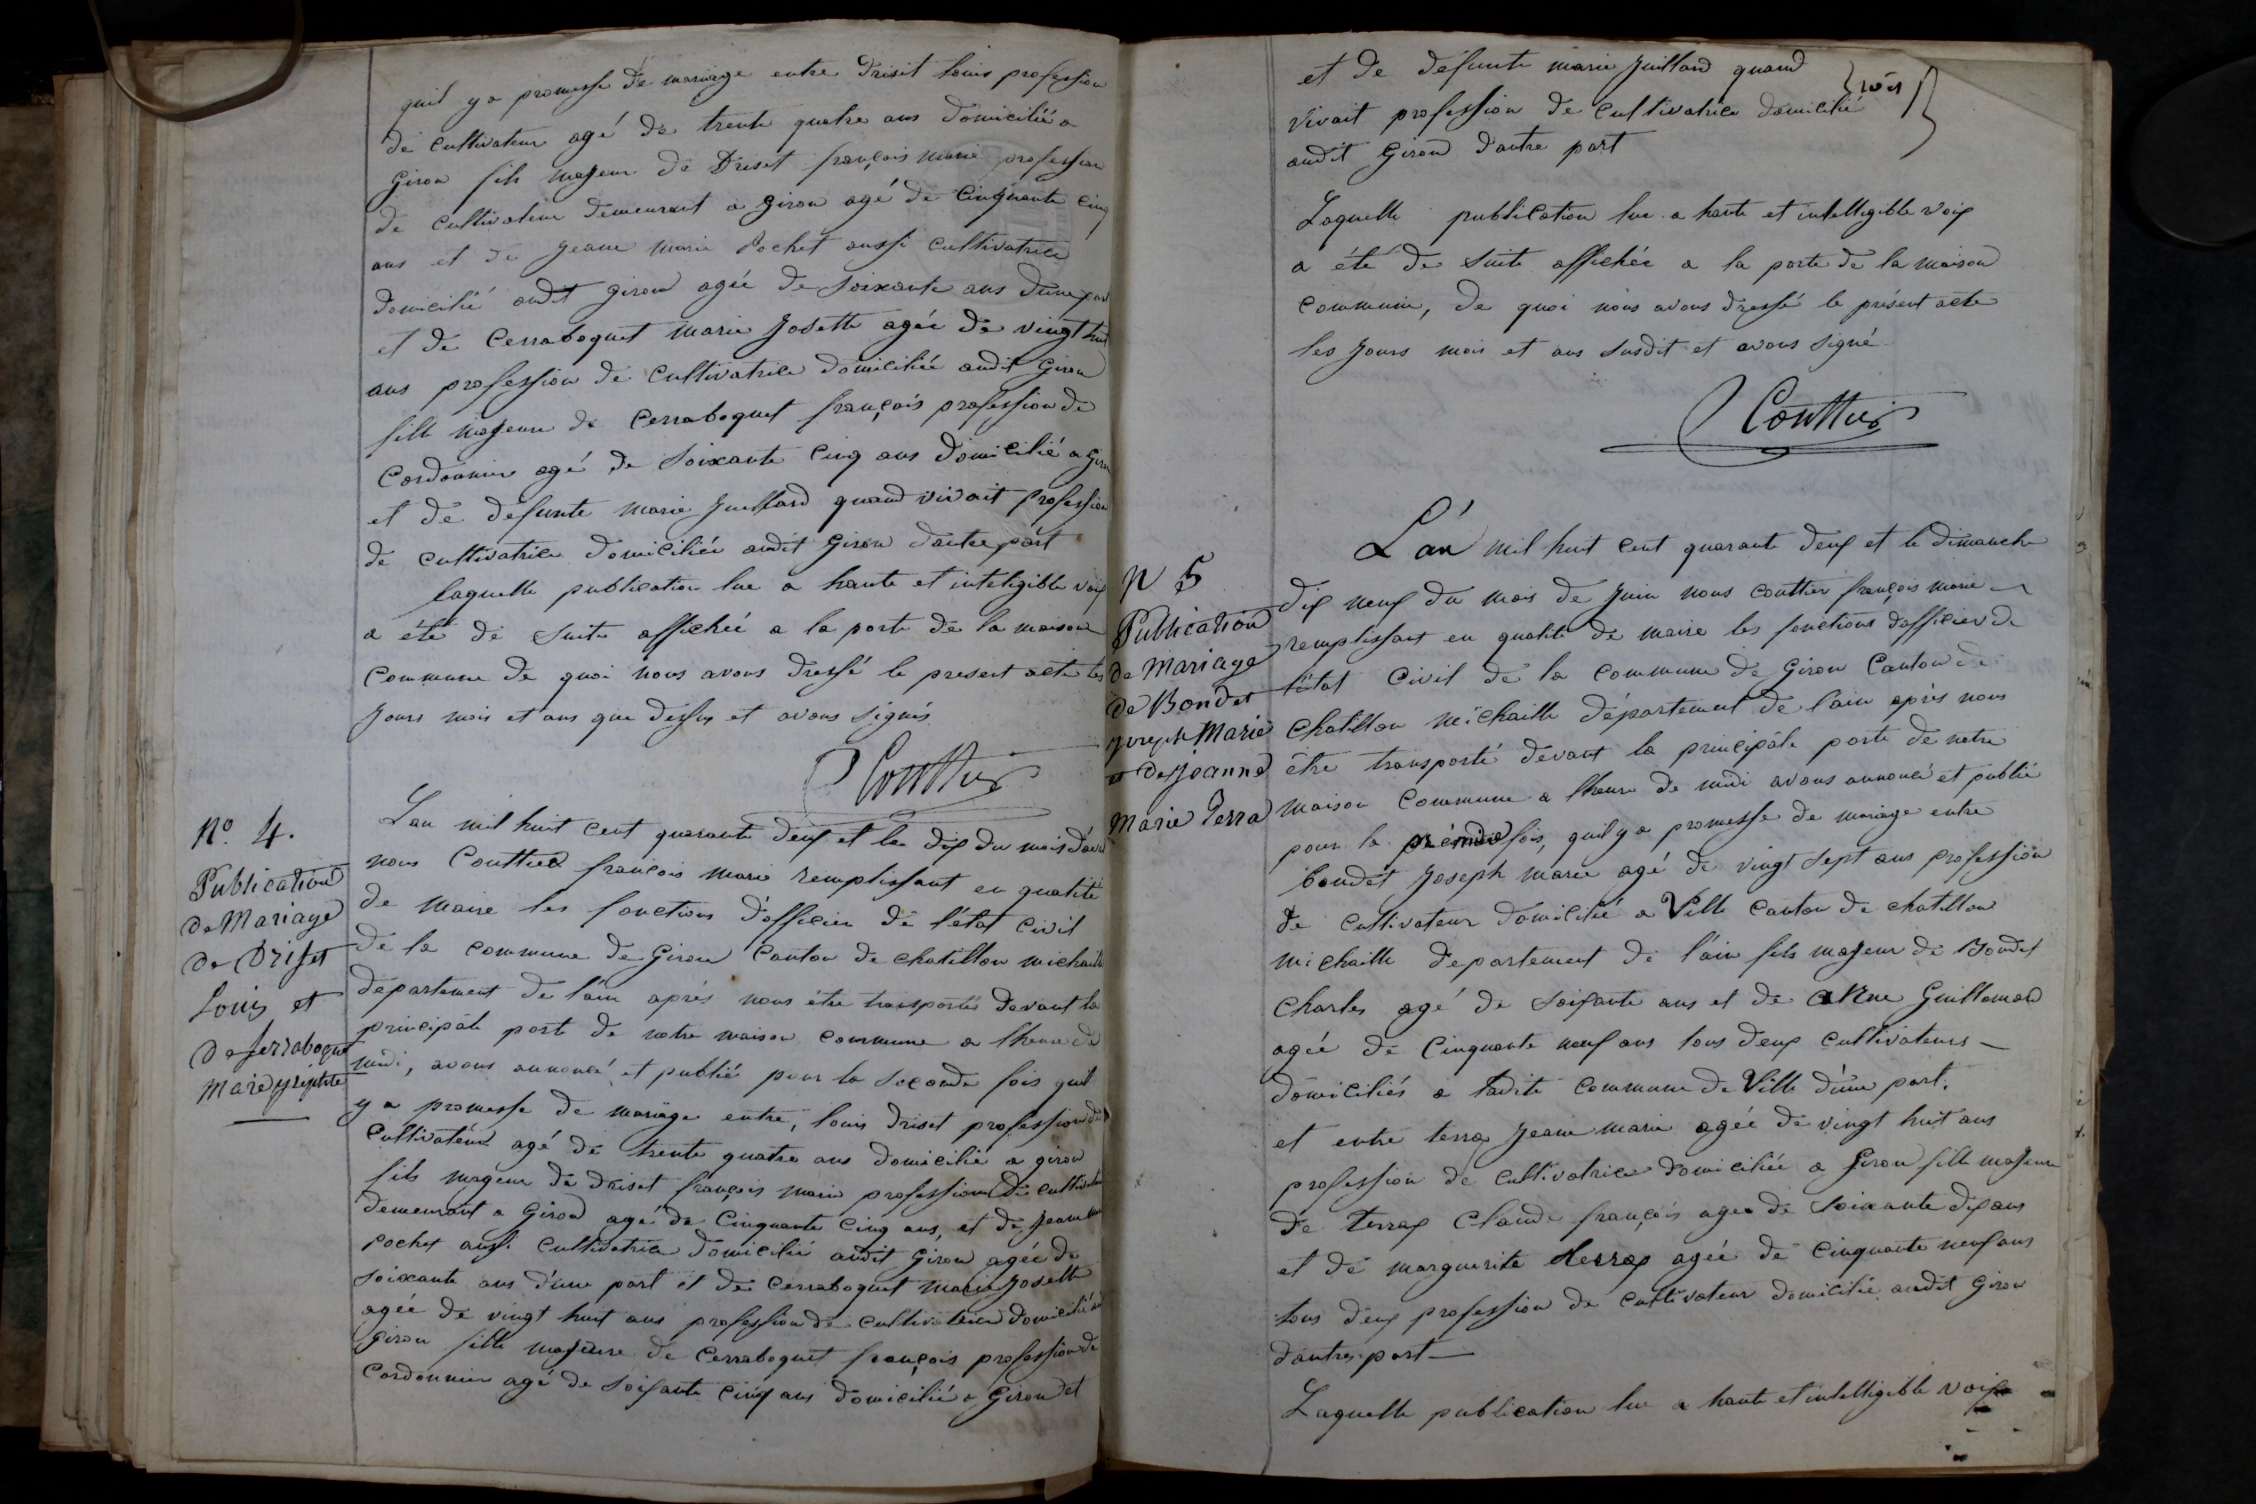 quil y a promesse de mariage entre Driset Louis profession
de cultivateur agé de trente quatre ans domicilié a
Giron fils majeur de Driset françois marie profession
de cultivateur demeurant a Giron agé de cinquante cinq
ans et de jeanne marie Pochet aussi cultivatrice
domicilié audit giron agée de soixante ans d'une part
et de Cerraboquet marie josette agée de vingt huit
ans profession de cultivatrice domiciliée audit Giron
fille majeure de Cerraboquet françois profession de
Cordonnier agé de soixante cinq ans domicilié a Giron
et de defunte marie juillard quand vivait profession
de cultivatrice domiciliée audit Giron d'autre part
laquelle publication lue a haute et inteligible voix
a été de suite affichée a la porte de la maison
commune de quoi nous avons dressé le present acte les
jours mois et ans que dessus et avons signés
Couttier
No. 4.
Publication
de Mariage
de Driset
Louis et
de Serraboque
Marie
Lan mil huit cent quarante deux et le dix du mois d'avril
nous Couttier françois marie remplissant en qualité
de maire les fonctions d'officier de l'état civil
de la commune de Giron Canton de chatillon michaille
departement de l'ain après nous être transportés devant la
principale porte de notre maison commune a lheure de
midi, avons annoncé et publié pour la seconde fois quil
y a promesse de mariage entre, louis driset profession de
cultivateur agé de trente quatre ans domicilié a giron
fils majeur de driset françois marie profession de cultivateur
demeurant a Giron agé de cinquante cinq ans, et de jeanne
pochet aussi cultivatrice domicilié audit Giron agée de
soixante ans d'une part et de Cerraboquet marie josette
agée de vingt huit ans profession de cultivatrice domicilié
Giron fille majeure de Cerraboquet françois profession de
cordonnier agé de soixante cinq ans domicilié a Giron et
et de defunte marie juillard quand
vivait profession de cultivatrice domicilié
audit Giron d'autre part
Laquelle publication lue a haute et intelligible voix
a été de suite affichée a la porte de la maison
commune, de quoi nous avons dressé le présent acte
les jours mois et ans susdit et avons signé
Couttier
N 5
Publication
de Mariage
de Bondet
joseph Marie
et de Jeanne
Marie Terra
L'an mil huit cent quarante deux et le dimanche
dix neuf du mois de juin nous couttier françois marie
remplissant en qualité de maire les fonctions d'officier de
l'état civil de la commune de Giron Canton de
chatillon michaille département de l'ain après nous
être transporté devant la principale porte de notre
maison commune a lheure de midi avons annoncé et publié
pour la premiere fois, quil y a promesse de mariage entre
bondet joseph marie agé de vingt sept ans profession
de cultivateur domicilié a Ville canton de chatillon
michaille departement de l'ain fils majeur de Bondet
charles agé de soixante ans et de anne Guillomod
agée de cinquante neuf ans tous deux cultivateurs
domiciliés a ladite commune de Ville d'une part.
et entre terraz jeanne marie agée de vingt huit ans
profession de cultivatrice domiciliée a Giron fille majeure
de terraz claude françois agé de soixante dix ans
et de marguerite agée de cinquante neuf ans
tous deux profession de cultivateur domicilié audit Giron
d'autre part
Laquelle publication lue a haute et intelligible voix